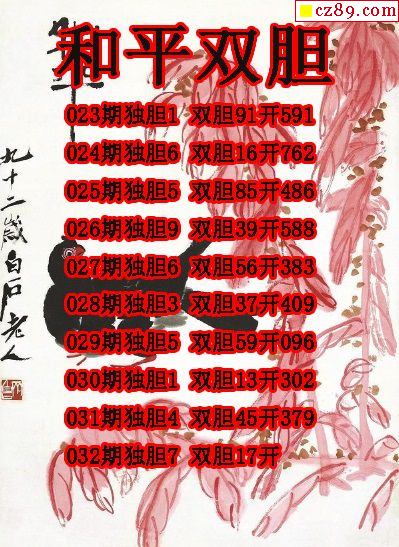 cz89.com
和平双胆
023期独胆1 双胆91开591
024期独胆6 双胆16开762
025期独胆5 双胆85开486
026期独胆9 双胆39开588
027期独胆6 双胆56开383
028期独胆3 双胆37开409
029期独胆5 双胆59开096
030期独胆1 双胆13开302
031期独胆4 双胆45开379
032期独胆7 双胆17开
九十二歲白石老人